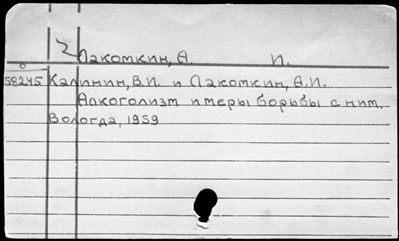 Лакомкин, А. И.
58245 Калинин, В.И. и Лакомкин, А.И.
Алкоголизм и меры борьбы с ним.
Вологда, 1959